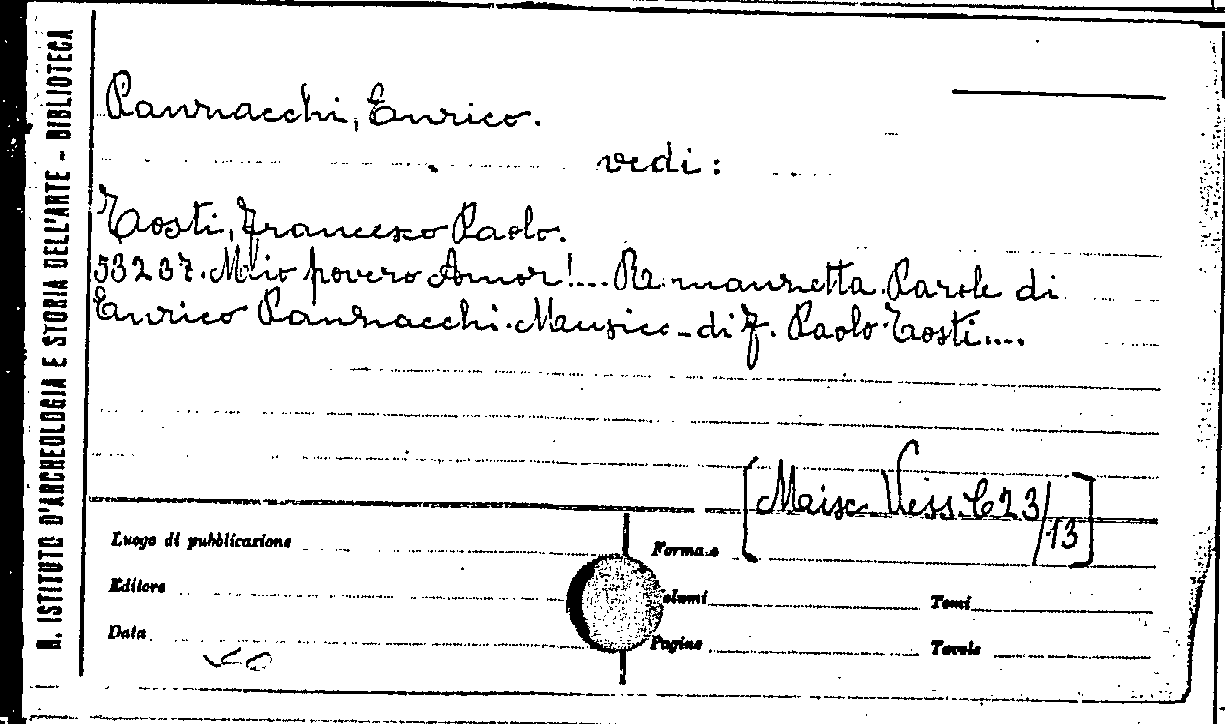 R. ISTITUTO D'ARCHEOLOGIA E STORIA DELL'ARTE - BIBLIOTECA
Pannacchi, Enrico.
vedi:
Tosti, Francesco Paolo.
53237. Mio povero Amor!.... Romanzetta. Parole di
Enrico Pannacchi. Mausice - di F. Paolo Tosti....
[Maisc. Vess. C 23/13]
Luogo di pubblicazione
Formato
Editore
Volumi
Tomi
Data
Pagine
Tavole